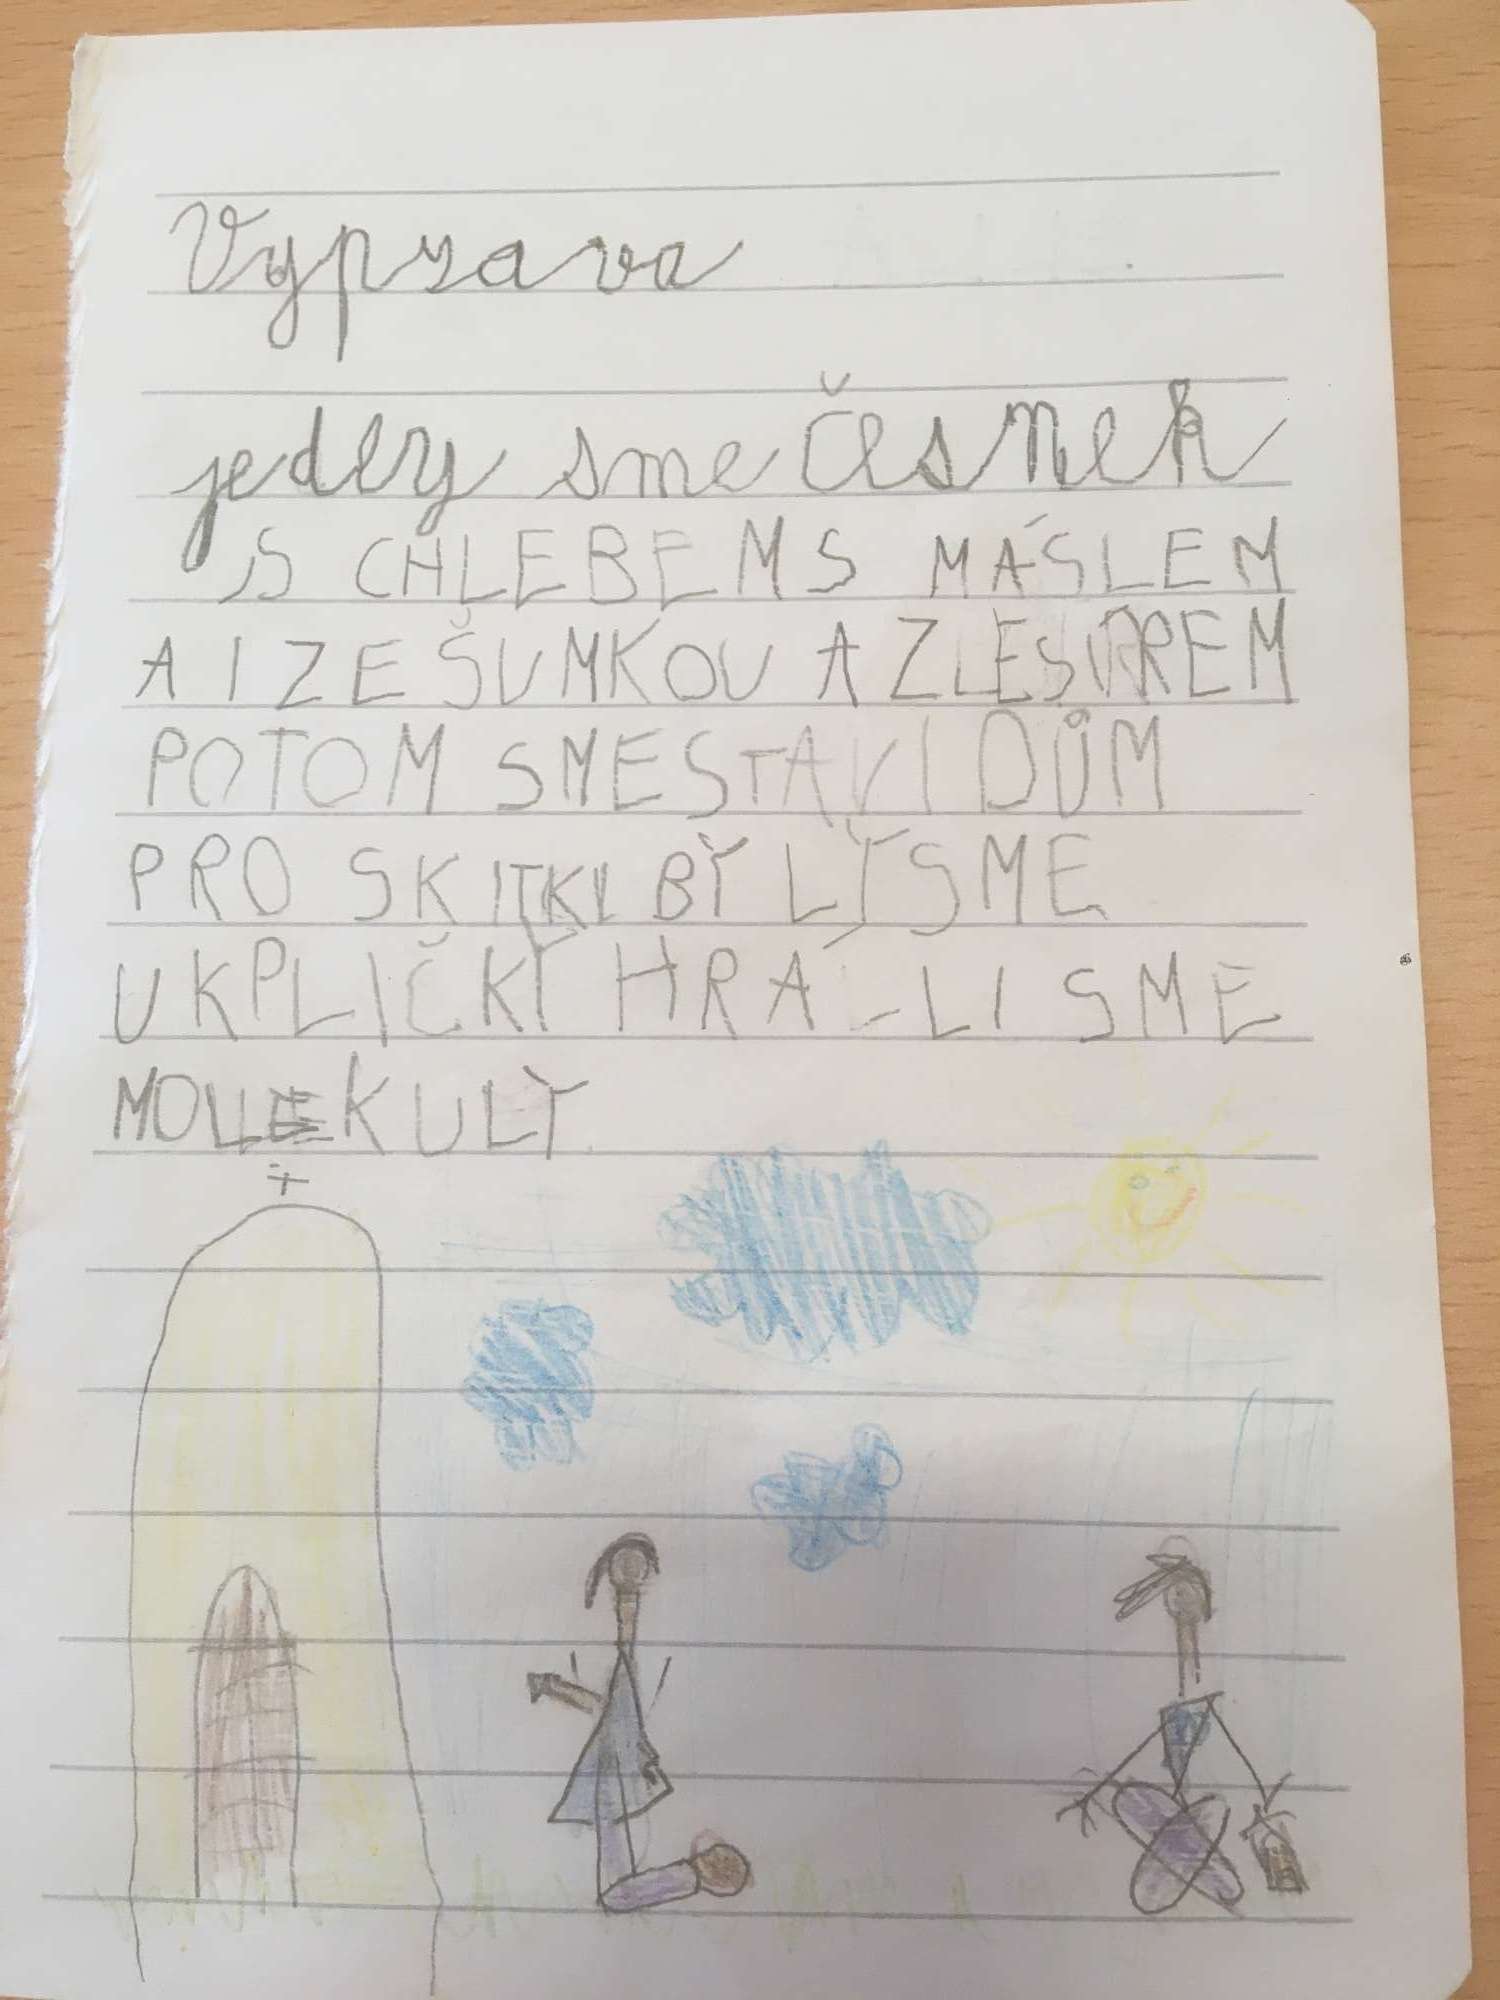 Vyprava
jedly sme česnek
S CHLEBEM S MÁSLEM
A I ZE ŠUMKOU A Z LESÍREM
POTOM SME STAVI DŮM
PRO SKITKI BY LY SME
U KPLIČKY HRÁ-LI SME
MOLEKULY